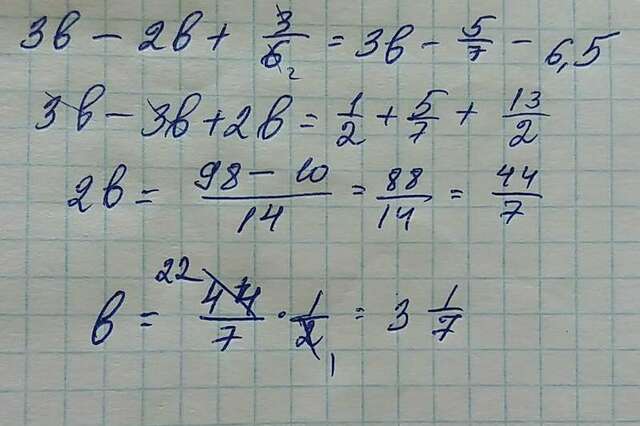 3в - 2в + 3/6 2 = 3в - 5/7 - 6,5
3в - 3в + 2в = 1/2 + 5/7 + 13/2
2в = 98 - 10/14 = 88/14 = 44/7
в = 22 44/7 · 1/2 1 = 3 1/7